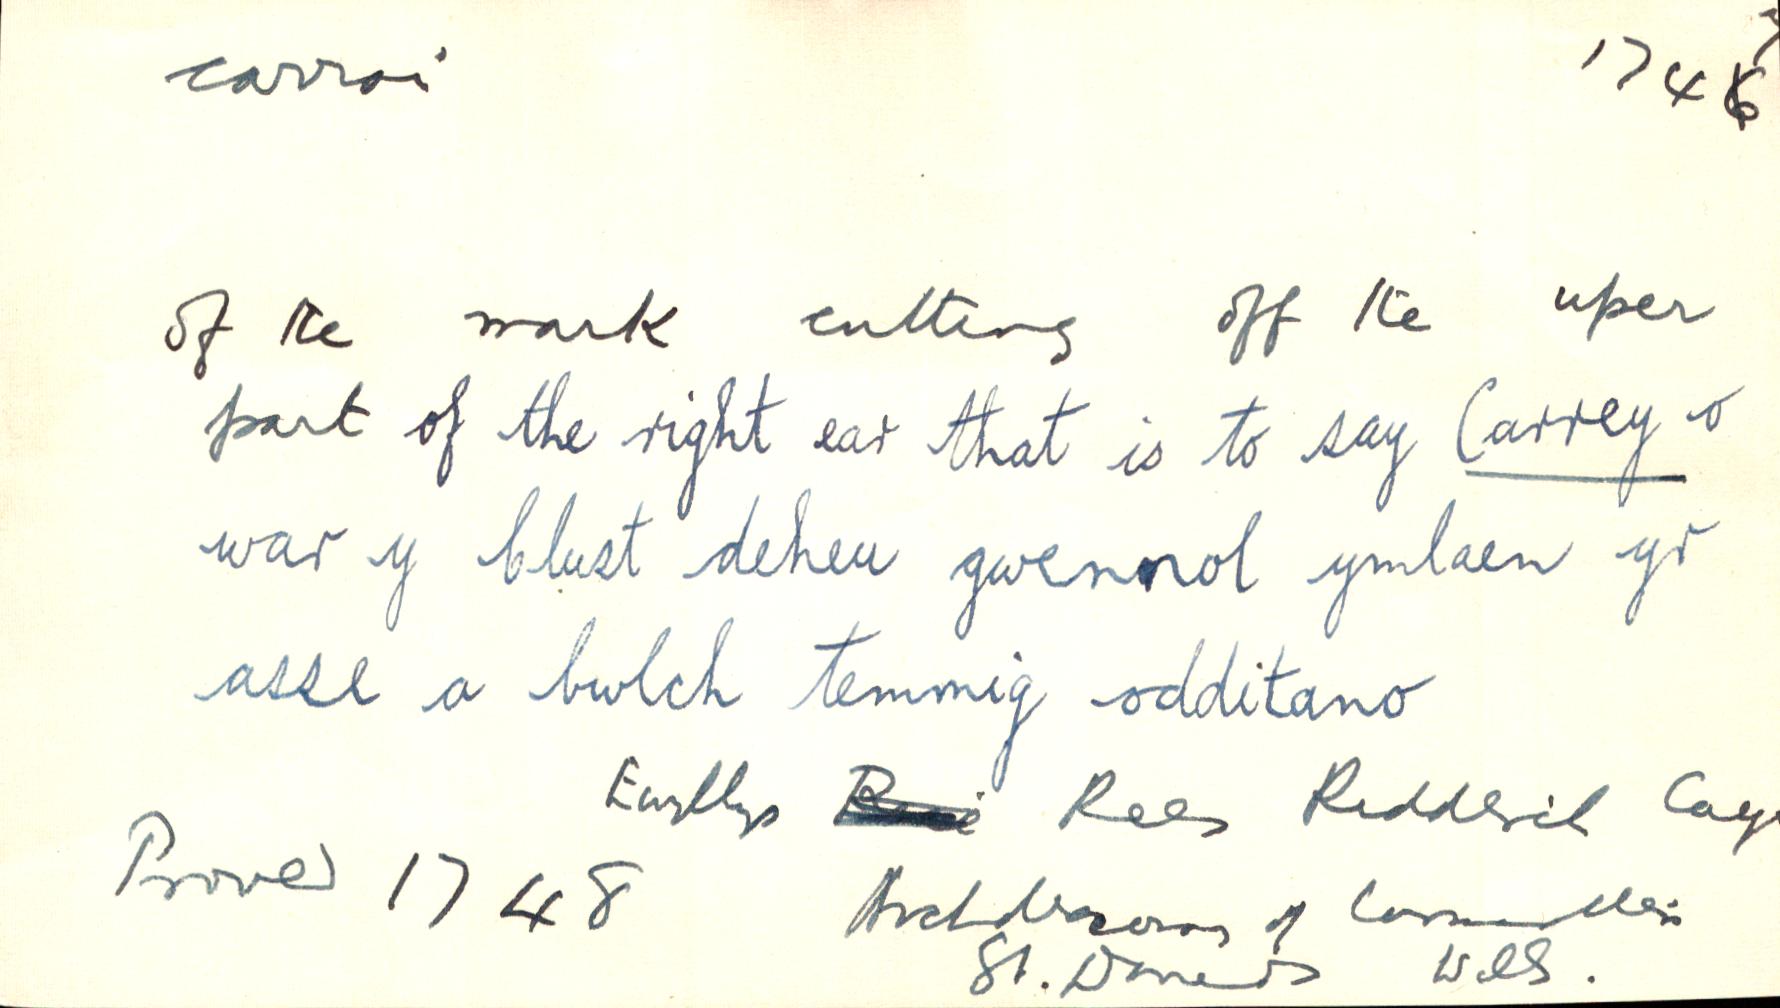 carrai
1746 7
of the mark cutting off the uper
part of the right ear that is to say Carrey o
war y blust deheu gwennol ymlaen yr
asse a bwlch temmig odditano
Ewyllys Rees Rydderch Cayo
Proved 1748
Archdeaconry of Carmarthen
St. Davids Wills.